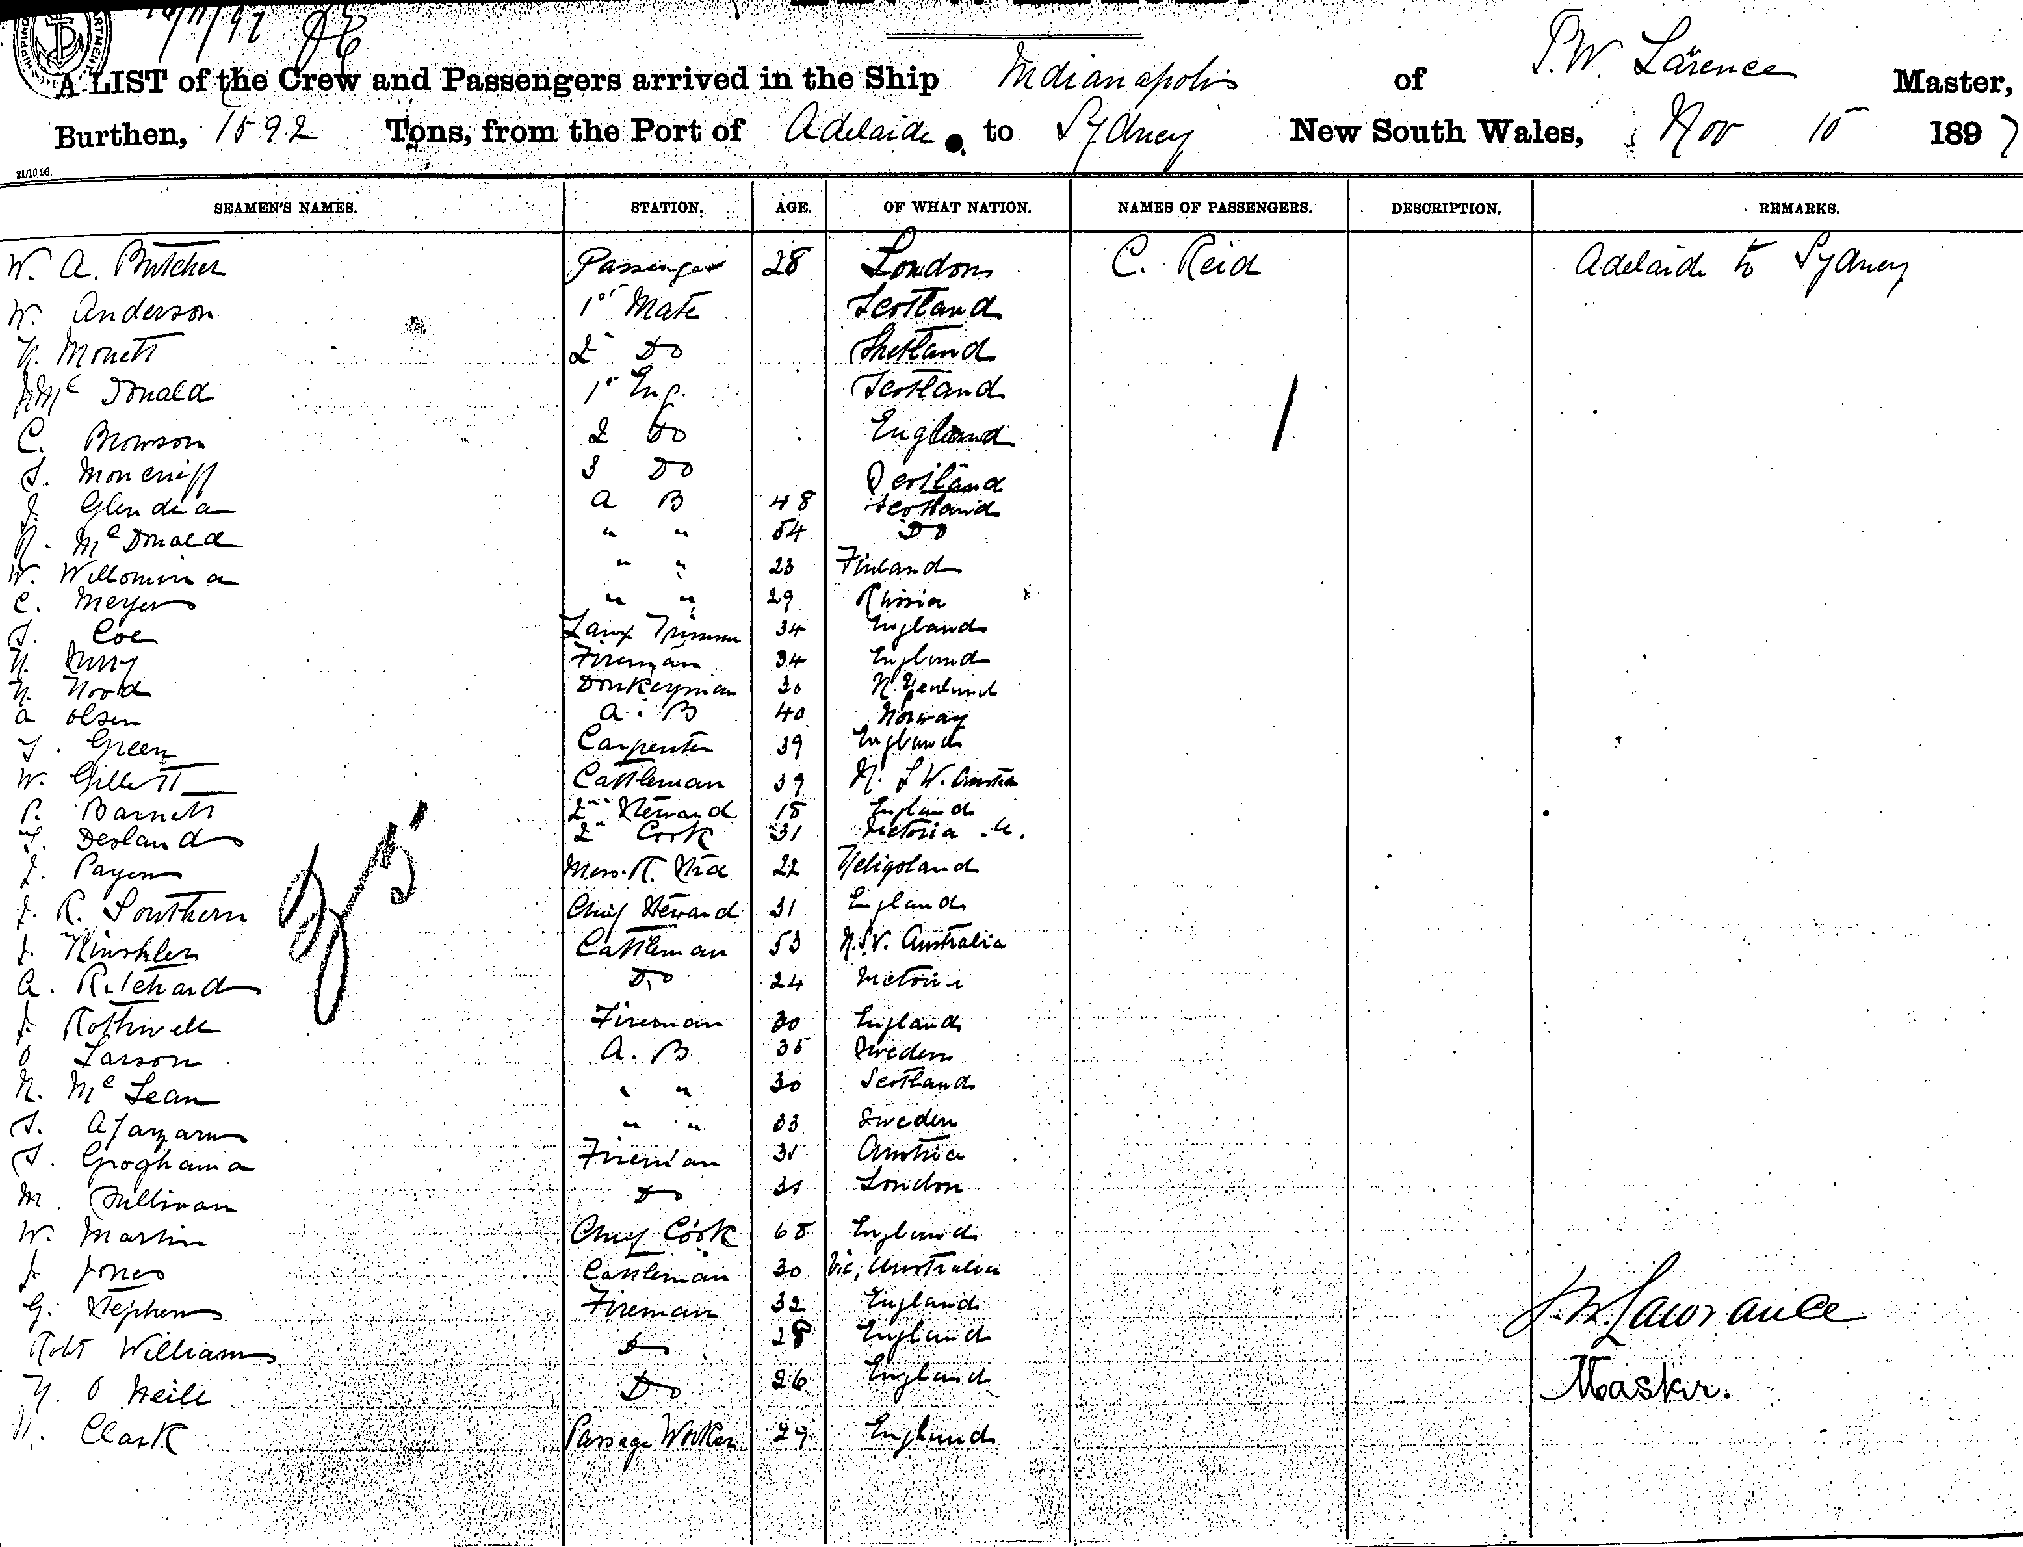 A LIST of the Crew and Passengers arrived in the Ship Indianapolis of T. W. Larence Master,
Burthen, 1592 Tons, from the Port of Adelaide to Sydney New South Wales, Nov 15 1897
21/10 96.
SEAMEN'S NAMES. STATION. AGE. OF WHAT NATION. NAMES OF PASSENGERS. DESCRIPTION. REMARKS.
W. A. Butcher Passenger 28 London C. Reid Adelaide to Sydney
W. Anderson 1st Mate Scotland
Mouett 2nd Do Shetland
McDonald 1st Eng. Scotland
C. Browson 2 Do England
Moncrieff 3 Do
J. Glendia A B 48 Scotland
McDonald " " 54 Do
W. " " 23 Finland
C. Meyers " " 29 Russia
Coe Lamp Trimmer 34 England
Fireman 34 England
Donkeyman 30
A Olsen A. B 40 Norway
Green Carpenter 39 England
W. Gillett Cattleman 39 N. S W.
P. Barnett 2nd Steward 18 England
Desland 2nd Cook 31 Victoria
J. Mess. R. Std 22 Heligoland
J. R. Southern Chief Steward 31 England
J. Hinshler Cattleman 53 N.S.W. Australia
A. Ritchard Do 24 Victoria
J. Rothwell Fireman 30 England
O Larson A. B 35 Sweden
N. McLean " " 30 Scotland
" " 33 Sweden
Fireman 31 Austria
M. Sullivan Do 31 London
W. Martin Chief Cook 68 England
J Jones Cattleman 30 Vic, Australia
G. Stephens Fireman 32 England
J. W. Lawrance
Robt Williams Do 28 England
O Neill Do 26 England
Master.
H. Clark Passage Worker 29 England
35